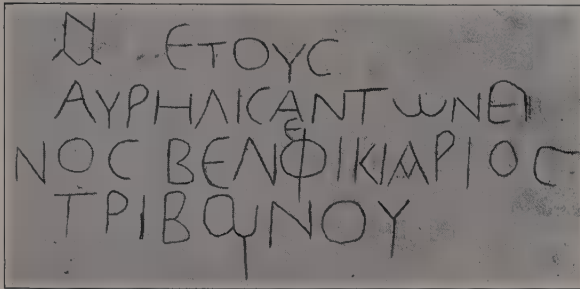 ΕΤΟΥC
ΑΥΡΗΛΙCΑΝΤωΝΕΙ
ΝΟC ΒΕΝΕΦΙΚΙΑΡΙΟC
ΤΡΙΒΟΥΝΟΥ